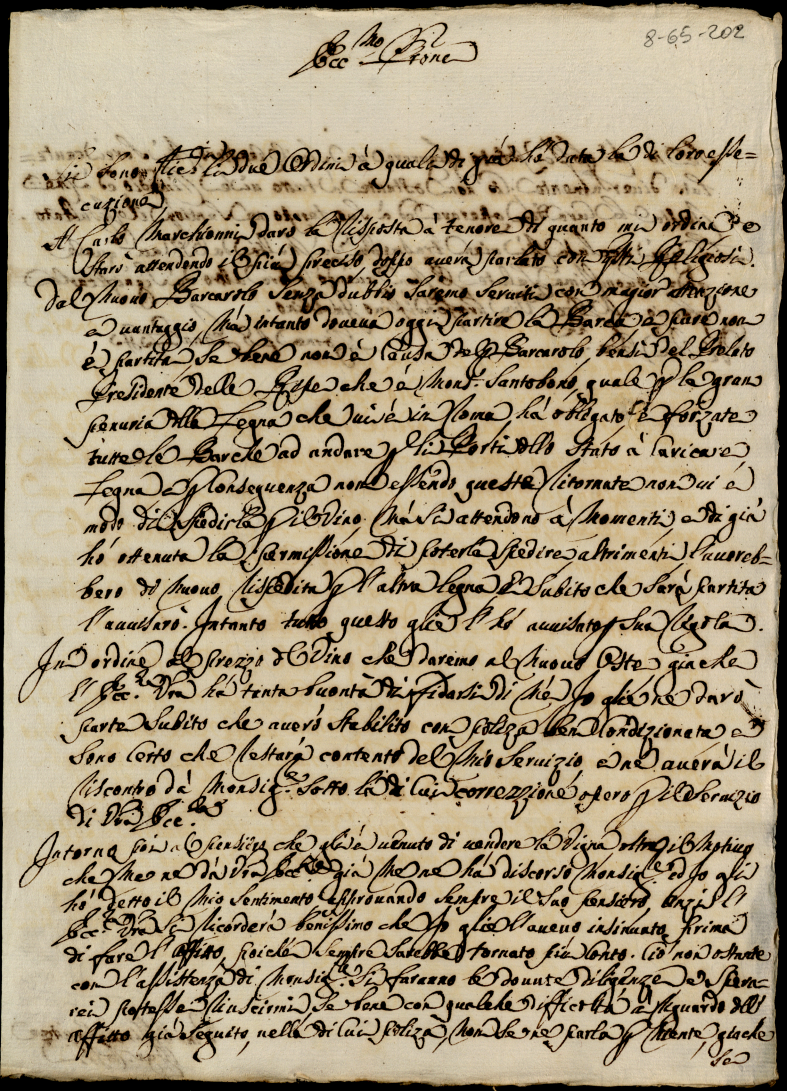 8-65-202
Ecc.mo P.rone
li due Ordini à quali di già hò data la di loro esse=
cuzione
A Carlo Marchionni darò la risposta à tenore di quanto mi ordina, e
starò attendendo il più preciso doppo averà parlato con Religiosi.
Dal Nuovo Barcarolo senza dubbio saremo serviti con magior attenzione
e vantaggio, Mà intanto doveva oggi partire la Barca e pure non
è partita, se bene non è causa del Barcarolo, bensì del Prelato
Presidente delle Ripe che è Mons.r Santobono, quale p la gran
penuria della Legna che vi è in Roma, hà obligato, e forzate
tutte le Barche ad andare p li Porti dello Stato à caricare
Legna e p Conseguenza non essendo queste ritornate non vi è
modo di spedirle p il Vino, Mà si attendono à Momenti, e di già
hò ottenuta la permissione di poterla spedire, altrimenti l'avereb=
bero di Nuovo rispedita p l'altra Legna E subito che sarà partita
l'avviserò. Intanto tutto questo glie l'hò avvisato p sua regola.
In ordine al prezzo del Vino che daremo al Nuovo Oste giache
l'Ecc.za Vra hà tanta buontà di fidarsi di Mè Io glie ne darò
parte subito che averò stabilito con poliza ben Condizionata e
sono certo che restarà contento del Mio Servizio e ne averà il
riscontro dà Monsig.re sotto la di lui correzzione opero p il Servizio
di Vra Ecc.za
Intorno poi al pensiero che gli è venuto di vendere la Vigna oltre il Motivo
che Me ne dà Vra Ecc.za già Me ne hà discorso Monsig.re ed Io gli
hò detto il Mio sentimento approvando sempre il suo pensiero, anzi l'
Ecc.za Vra si ricorderà benissimo che Io glie l'avevo insinuato prima
di fare l'affitto, poiche sempre sarebbe tornato più conto. Ciò non ostante
con l'assistenza di Monsig.re si faranno le dovute diligenze e spera=
rei potesse riuscirmi, se bene con qualche difficoltà à riguardo dell'
affitto già seguito, nella di cui poliza, Non se ne parla p Niente, giache
se